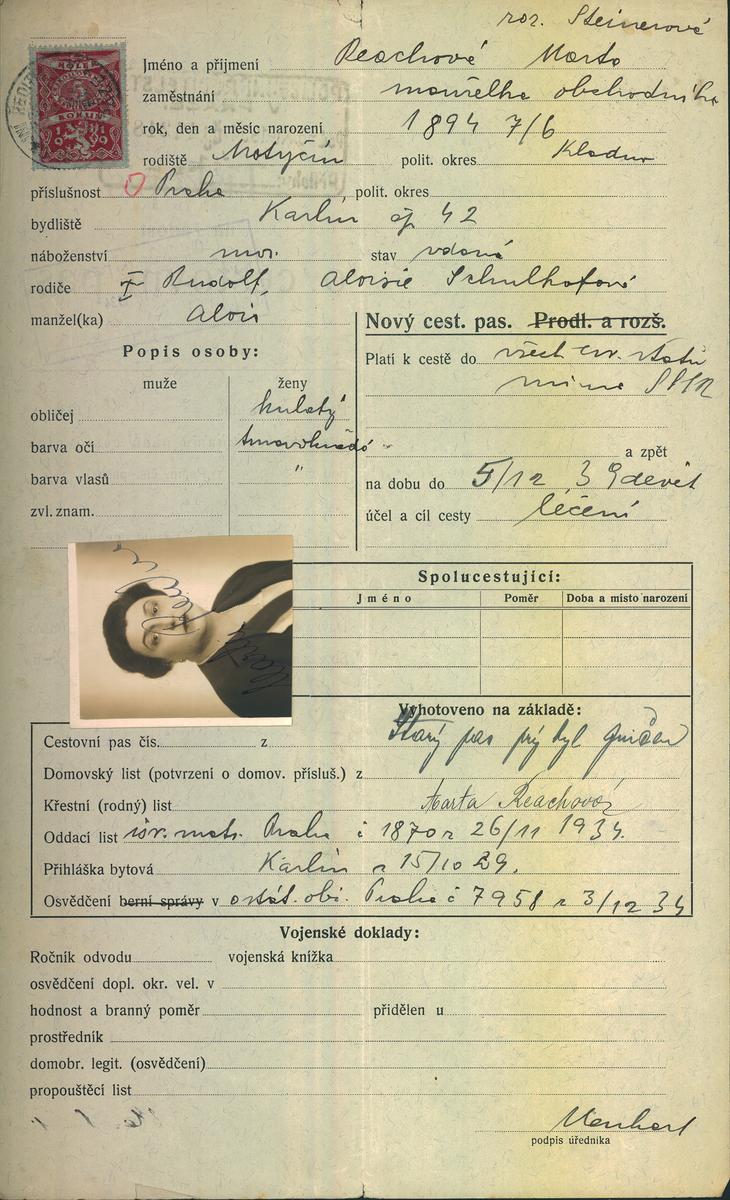 roz. Steinerová
Jméno a příjmení Reachová Marta
zaměstnání manželka obchodníka
rok, den a měsíc narození 1894 7/6
rodiště Motyčín polit. okres Kladno
příslušnost Praha, polit. okres
bydliště Karlín čp. 42
náboženství stav vdaná
rodiče Rudolf, Aloisie Schulhofová
manžel(ka) Alois
Nový cest. pas. Prodl. a rozš.
Popis osoby:
Platí k cestě do všech evr. států
mimo SSSR
muže ženy
obličej kulatý
barva očí tmavohnědé
a zpět
barva vlasů "
na dobu do 5/12 39 devět
zvl. znam.
účel a cíl cesty léčení
Spolucestující:
Jméno Poměr Doba a místo narození
Vyhotoveno na základě:
Cestovní pas čís. z Starý pas prý byl zničen
Domovský list (potvrzení o domov. přísluš.) z
Křestní (rodný) list Marta Reachová
Oddací list isr. matr. Praha č 1870 z 26/11 1934.
Přihláška bytová Karlín z 15/10 29.
Osvědčení berní správy v Praha č 7958 z 3/12 34
Vojenské doklady:
Ročník odvodu vojenská knížka
osvědčení dopl. okr. vel. v
hodnost a branný poměr přidělen u
prostředník
domobr. legit. (osvědčení)
propouštěcí list
podpis úředníka